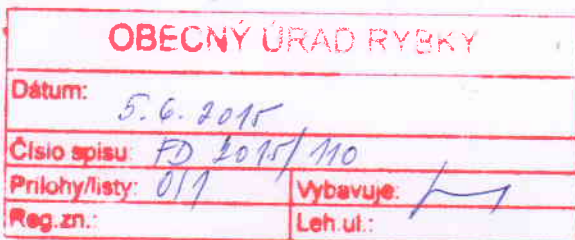 OBECNÝ ÚRAD RYBKY
Dátum:
5.6.2015
Číslo spisu: FD 2015/110
Prílohy/listy: 0/1 Vybavuje:
Reg.zn.: Leh.ul.: